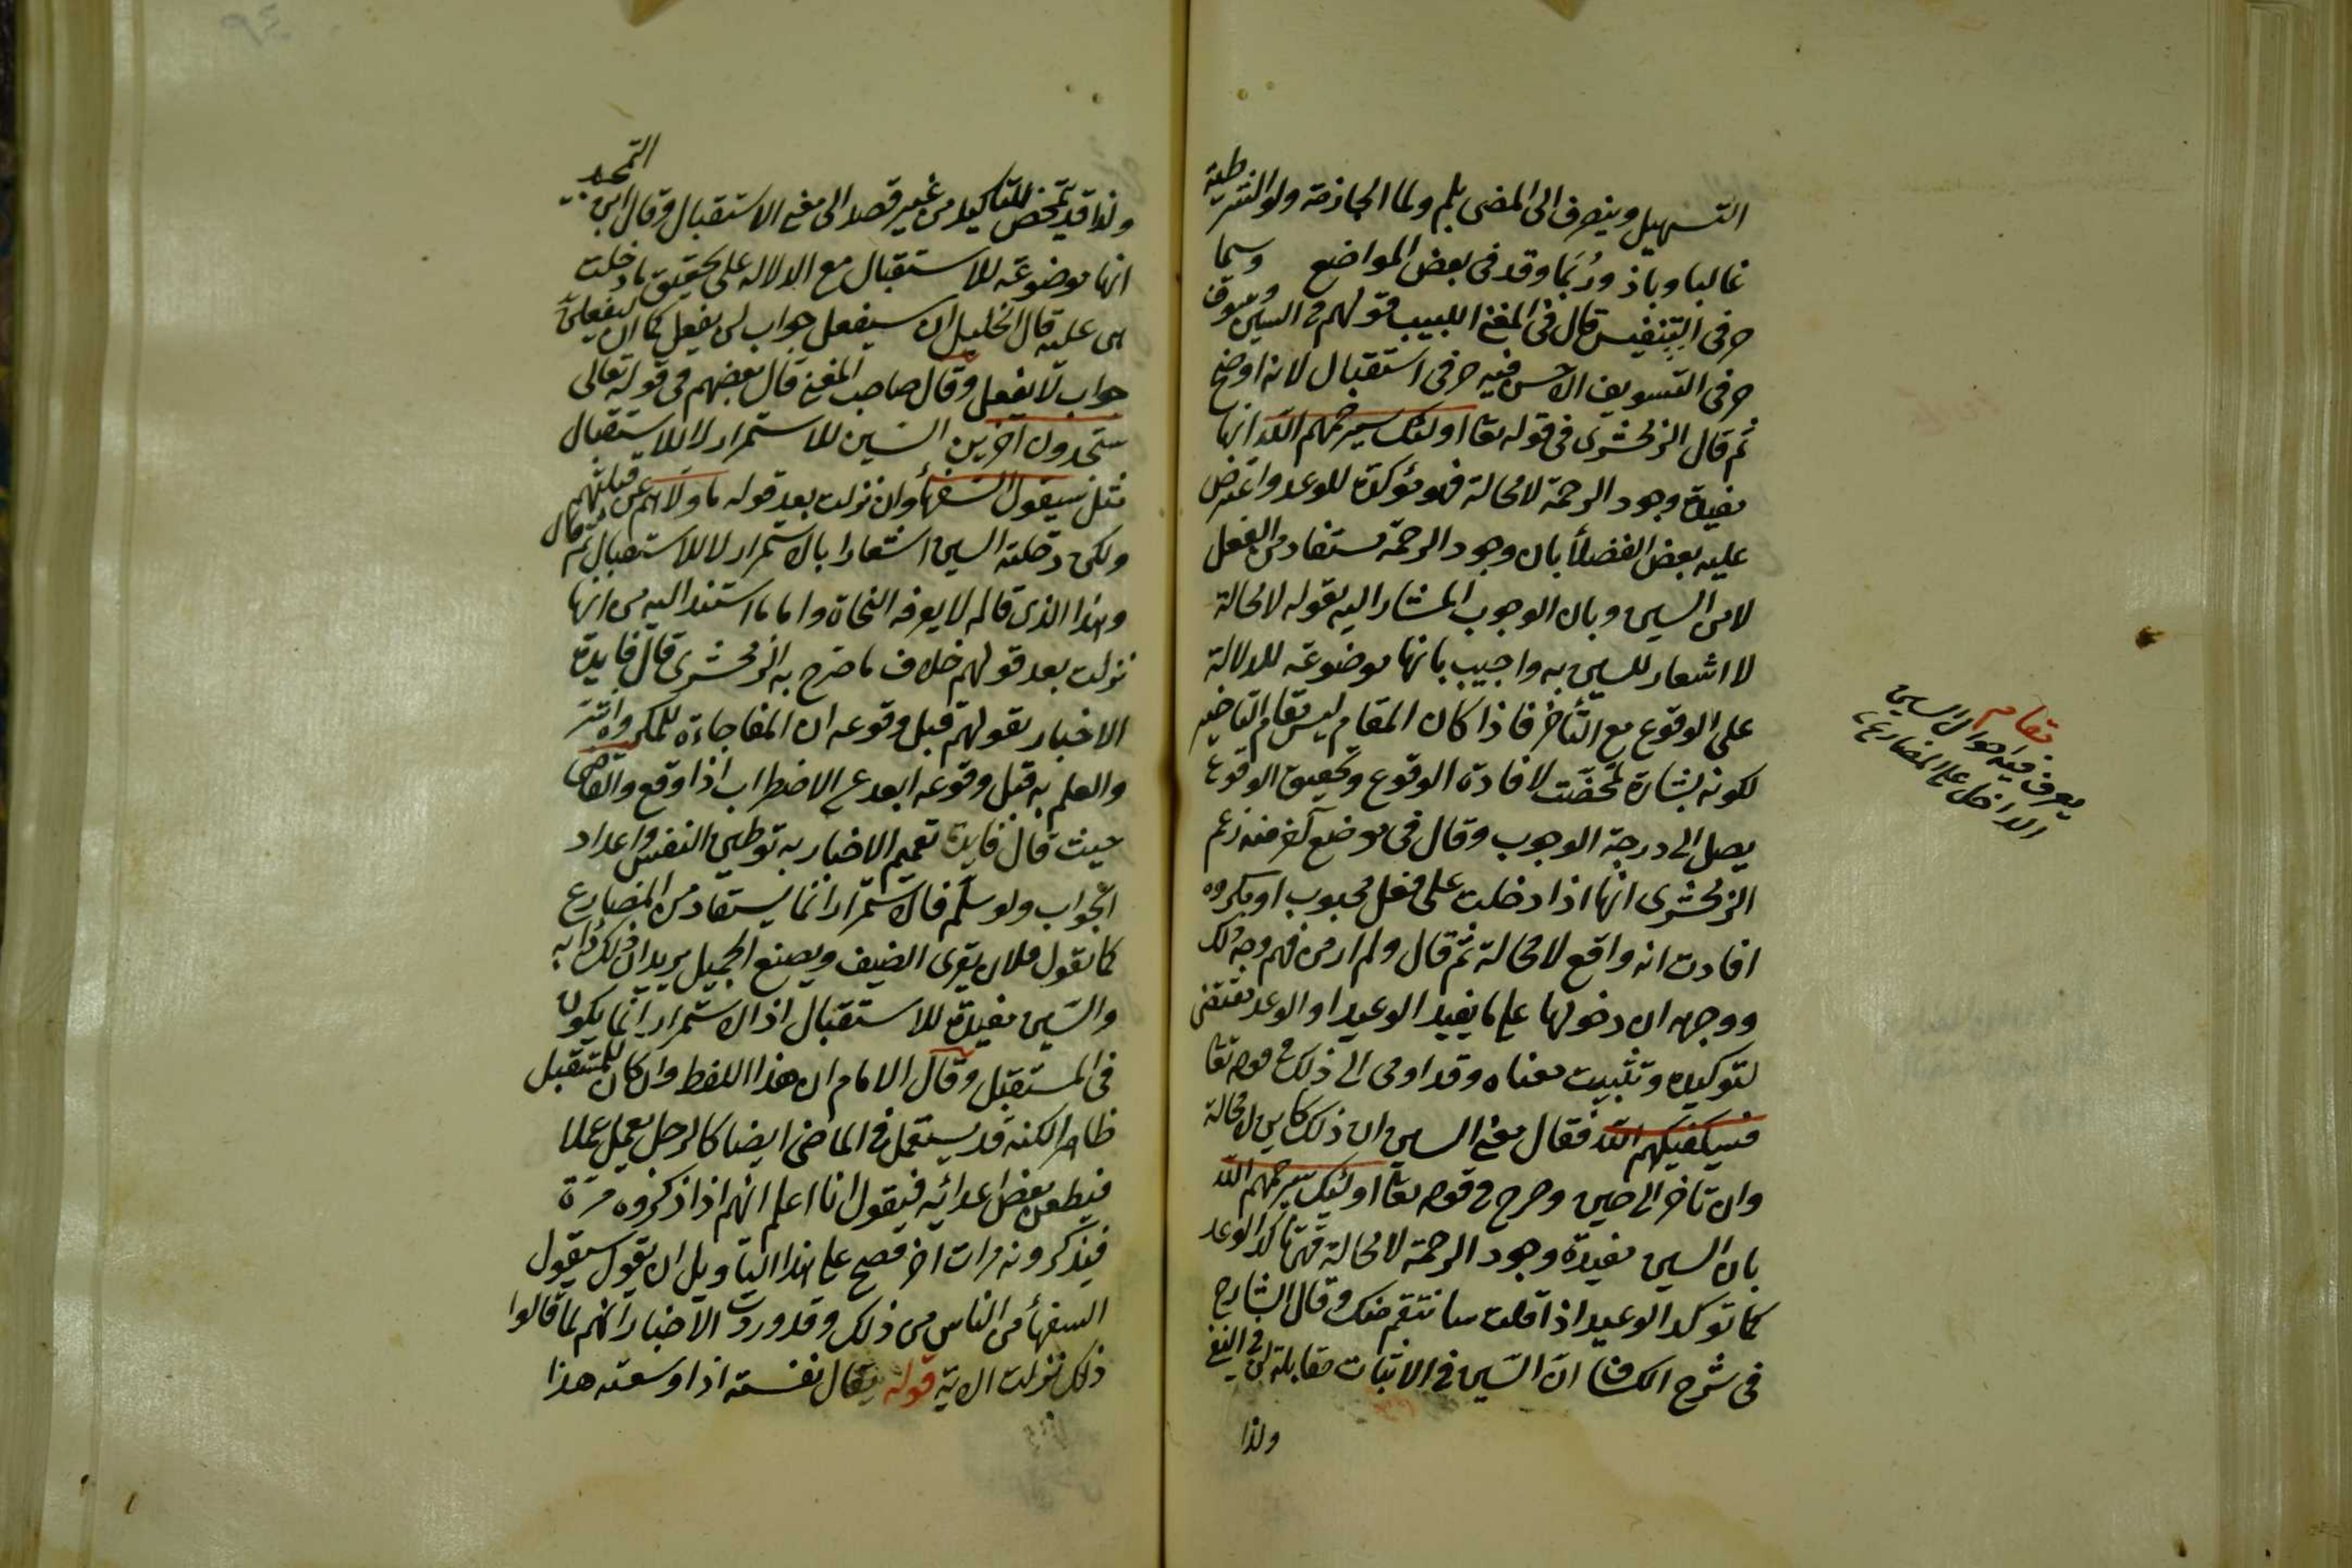 التسهيل وينصرف الى المضى بلم ولما الجازمة ولو الشرطية
غالبا وباذ ورُبَمَا وقد فى بعض المواضع وسما
حرفى التنفيس قال فى المغنى اللبيب قولهم فى السين وسوف
حرفى التسويف الاحسن فيه حرفى استقبال لانه اوضح
ثم قال الزمخشرى فى قوله تعا اولئك سيرحمهم الله انها
مفيدة وجود الرحمة لا محالة فهو مؤكدة للوعد واعترض
عليه بعض الفضلأ بان وجود الرحمة مستفاد من الفعل
لا من السين وبان الوجوب المشار اليه بقوله لا محالة
لا اشعار للسين به واجيب بانها موضوعة للدلالة
على الوقوع مع التأخر فاذا كان المقام ليس مقام التاخير
لكونه بشارة تمحضت لافادة الوقوع وتحقيق الوقوع
يصل الى درجة الوجوب وقال فى موضع آخر منه زعم
الزمخشرى انها اذا دخلت على فعل محبوب او مكروه
افادت انه واقع لا محالة ثم قال ولم ار من فهم وجه ذلك
ووجهه ان دخولها على ما يفيد الوعيد او الوعد مقتض
لتوكيده وتثبيت معناه وقد اومى الى ذلك فى قوله تعا
فسيكفيكهم الله فقال معنى السين ان ذلك كاين لا محالة
وان تاخر الى حين وصرح فى قوله تعا اولئك سيرحمهم الله
بان السين مفيدة وجود الرحمة لا محالة فهى تاكد الوعد
كما توكد الوعيد اذا قلت سانتقم منك وقال الشارح
فى شرح الكشاف ان السين فى الاثبات مقابلة لن فى النفى
ولذا
مقام
يعرف فيه احوال السين
الداخل على المضارع
التمحد
ولذا قد تمحض للتاكيد من غير قصد الى معنى الاستقبال وقال ابن
انها موضوعة للاستقبال مع الدلالة على تحقيق ما دخلت
هى عليه قال الخليل ان سيفعل جواب لن يفعل كما ان ليفعلن
جواب لا يفعل وقال صاحب المغنى قال بعضهم فى قوله تعالى
ستجدون آخرين السين للاستمرار لا للاستقبال
مثل سيقول السفهأ وان نزلت بعد قوله ما ولاهم عن قبلتهم
ولكن دخلته السين اشعارا بالاستمرار لا للاستقبال ثم قال
وهذا الذى قاله لا يعرفه النحاة واما ما استند اليه من انها
نزلت بعد قولهم خلاف ما صرح به الزمخشرى قال فايدة
الاخبار بقولهم قبل وقوعه ان المفاجاءة للمكروه اشد
والعلم به قبل وقوعه ابعد عن الاضطراب اذا وقع والقاضى
حيث قال فايدة تقديم الاخبار به توطين النفس واعداد
الجواب ولو سلم فالاستمرار انما يستفاد من المضارع
كما تقول فلان يقرى الضيف ويصنع الجميل يريد ان ذلك دابه
والسين مفيدة للاستقبال اذ الاستمرار انما يكون
فى المستقبل وقال الامام ان هذا اللفظ وان كان للمستقبل
ظاهرا لكنه قد يستعمل فى الماضى ايضا كالرجل يعمل عملا
فيطعن بعض اعدائه فيقول انا اعلم انهم اذا ذكروه مرّة
فيذكرونه مرات اخر فصح على هذا التاويل ان يقول سيقول
السفهأ من الناس من ذلك وقد وردت الاخبار انهم لما قالوا
ذلك نزلت الاية قوله يقال نفسته اذا وسعته هذا